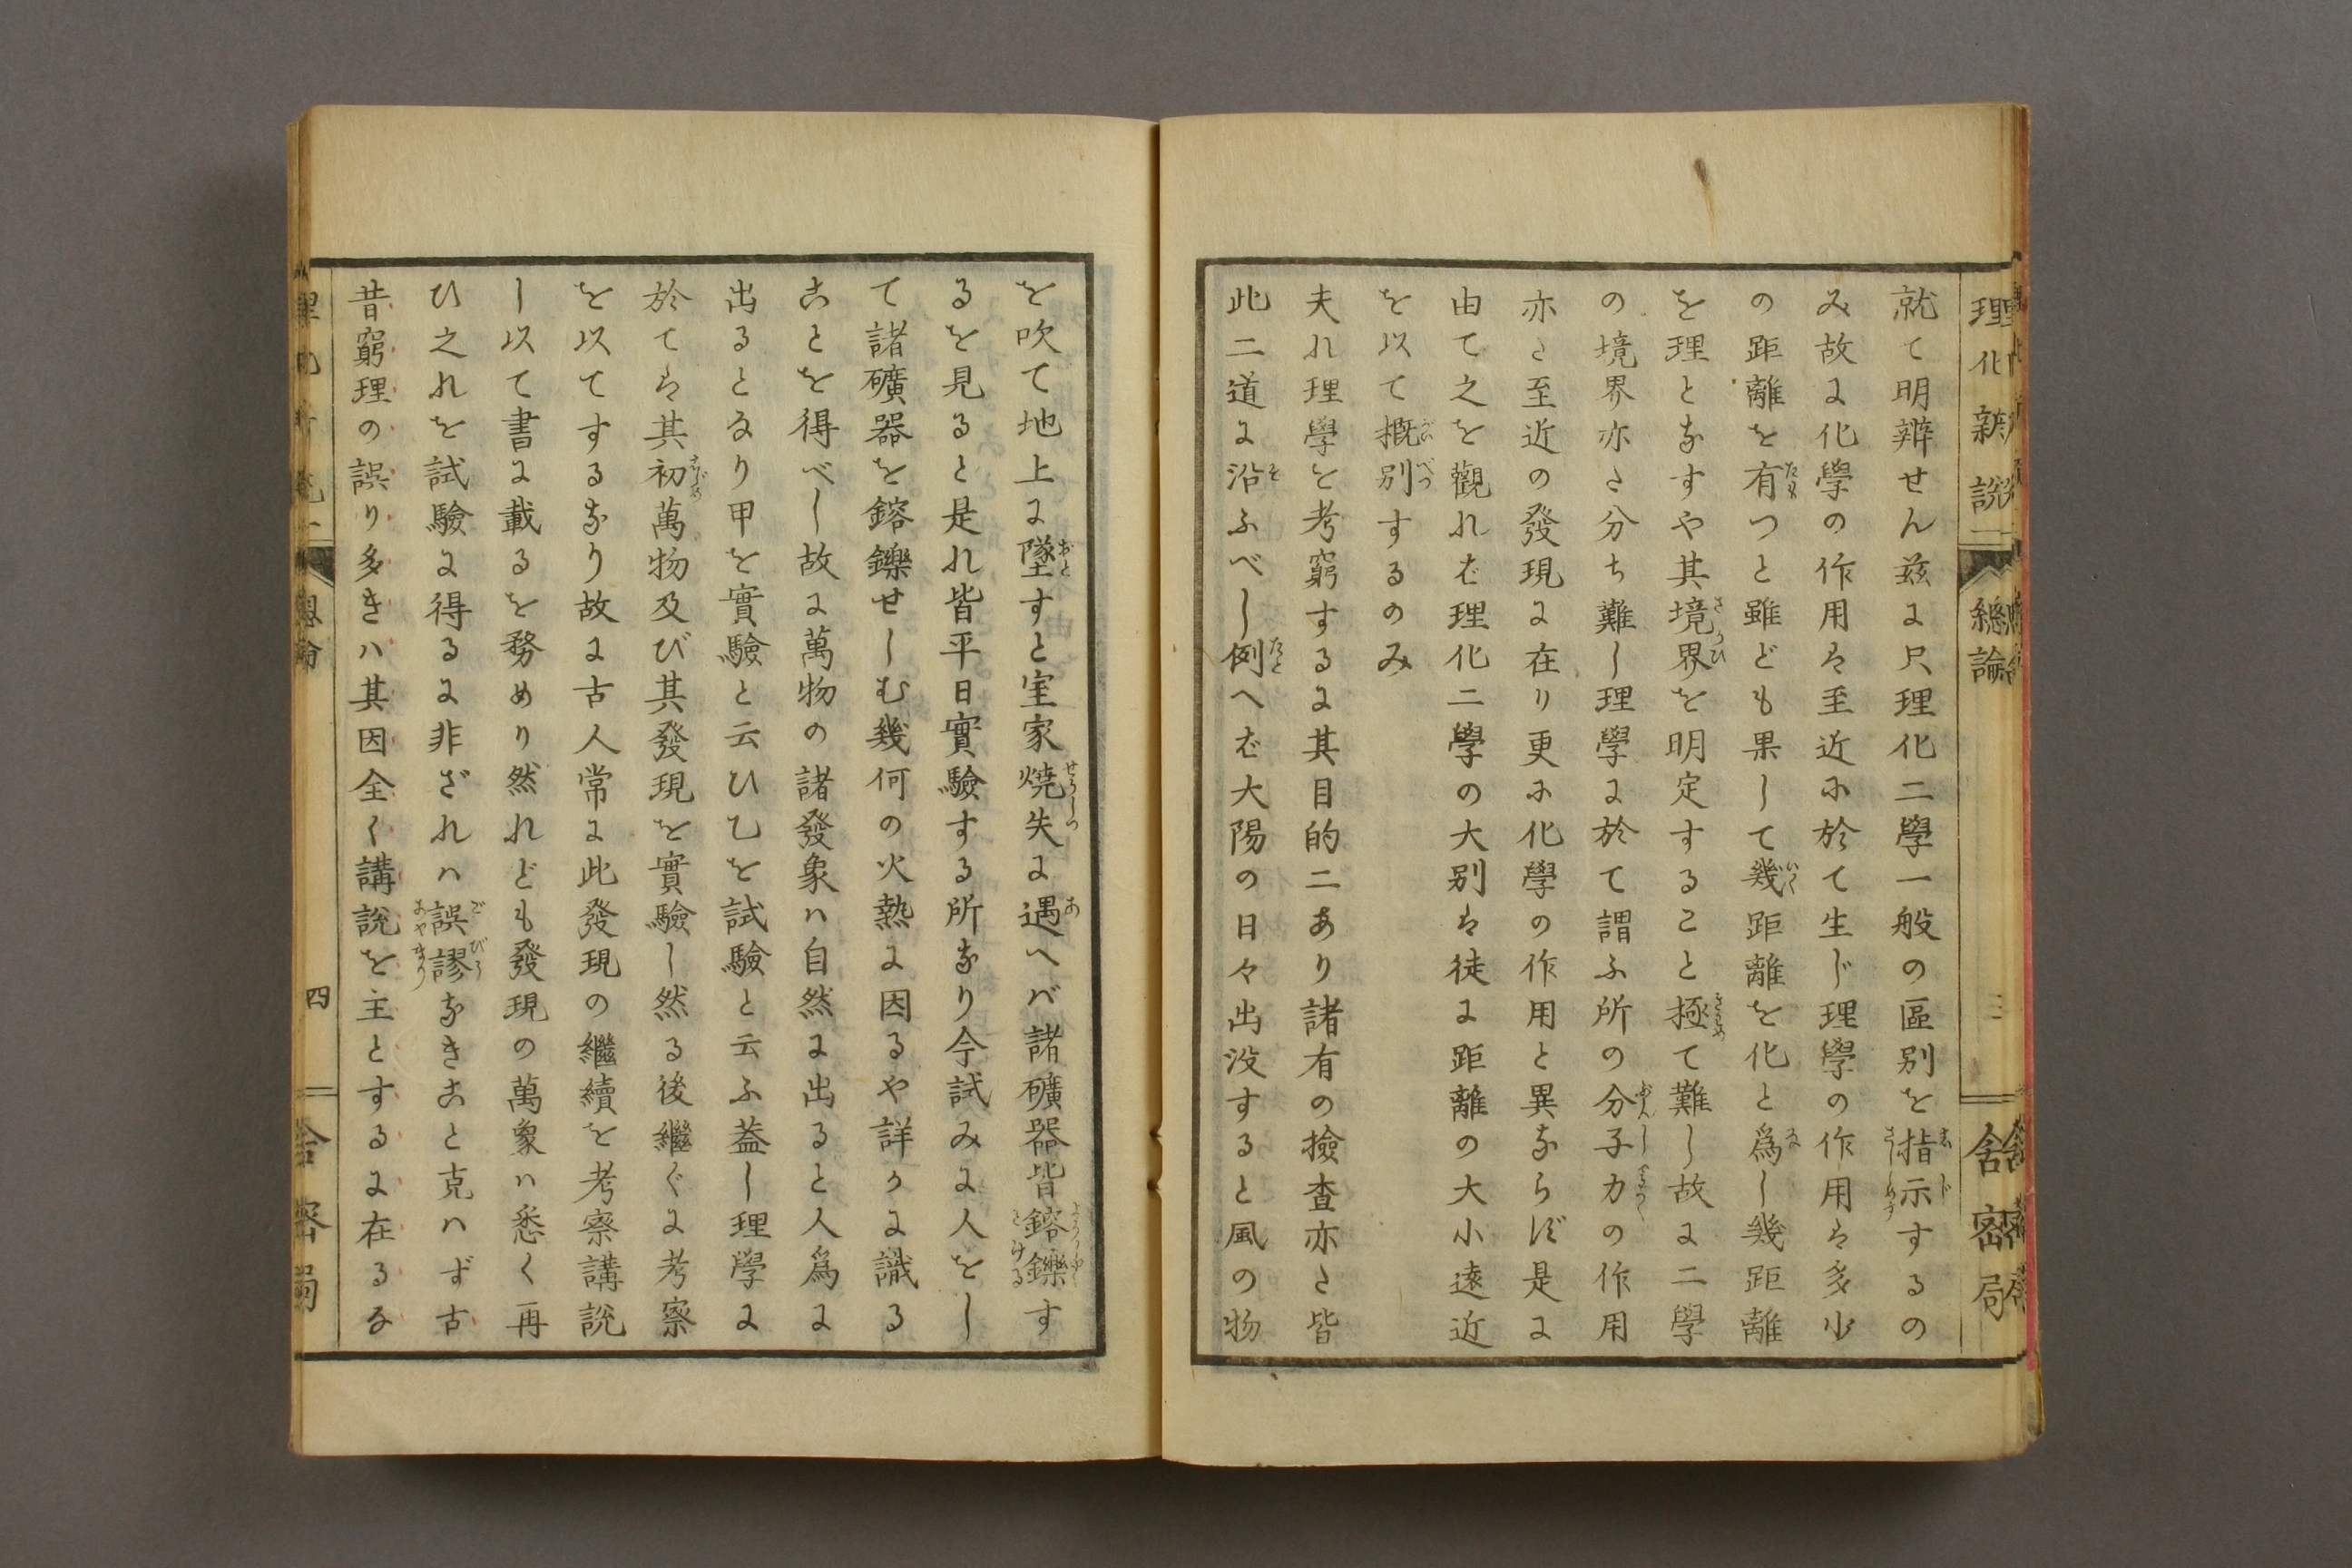 理化新説
總論
三
舎密局
就て明辨せん茲に只理化二學一般の區別を指示するの
み故に化學の作用は至近に於て生じ理學の作用は多少
の距離を有つと雖ども果して幾距離を化と爲し幾距離
を理となすや其境界を明定すること極て難し故に二學
の境界亦た分ち難し理學に於て謂ふ所の分子力の作用
亦た至近の發現に在り更に化學の作用と異ならず是に
由て之を觀れば理化二學の大別は徒に距離の大小遠近
を以て概別するのみ
夫れ理學を考窮するに其目的二あり諸有の撿査亦た皆
此二道に沿ふべし例へば大陽の日々出没すると風の物
を吹て地上に墜すと室家燒失に遇へバ諸礦器皆鎔鑠す
るを見ると是れ皆平日實驗する所なり今試みに人をし
て諸礦器を鎔鑠せしむ幾何の火熱に因るや詳かに識る
ことを得べし故に萬物の諸發象ハ自然に出ると人爲に
出るとなり甲を實驗と云ひ乙を試驗と云ふ葢し理學に
於ては其初萬物及び其發現を實驗し然る後繼ぐに考察
を以てするなり故に古人常に此發現の繼續を考察講説
し以て書に載るを務めり然れども發現の萬象ハ悉く再
ひ之れを試驗に得るに非ざれハ誤謬なきこと克ハず古
昔窮理の誤り多きハ其因全く講説を主とするに在るな
四